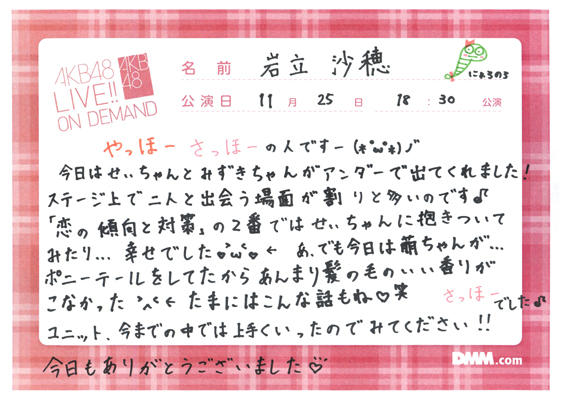 AKB48
LIVE!!
ON DEMAND
AKB
48
名前 岩立 沙穂
にょろのろ
公演日 11月 25日 18:30 公演
やっほー さっほーの人ですー (*°ω°*)ノ"
今日はせぃちゃんとみずきちゃんがアンダーで出てくれました!
ステージ上で二人と出会う場面が割りと多いのです♪
「恋の傾向と対策」の2番ではせぃちゃんに抱きついて
みたり... 幸せでした♥°ω°♥ ← あ、でも今日は萌ちゃんが...
ポニーテールをしてたからあんまり髪の毛のいい香りが
こなかった °^° ← たまにはこんな話もね♡笑
さっほーでした♪
ユニット、今までの中では上手くいったのでみてください!!
今日もありがとうございました♡
DMM.com